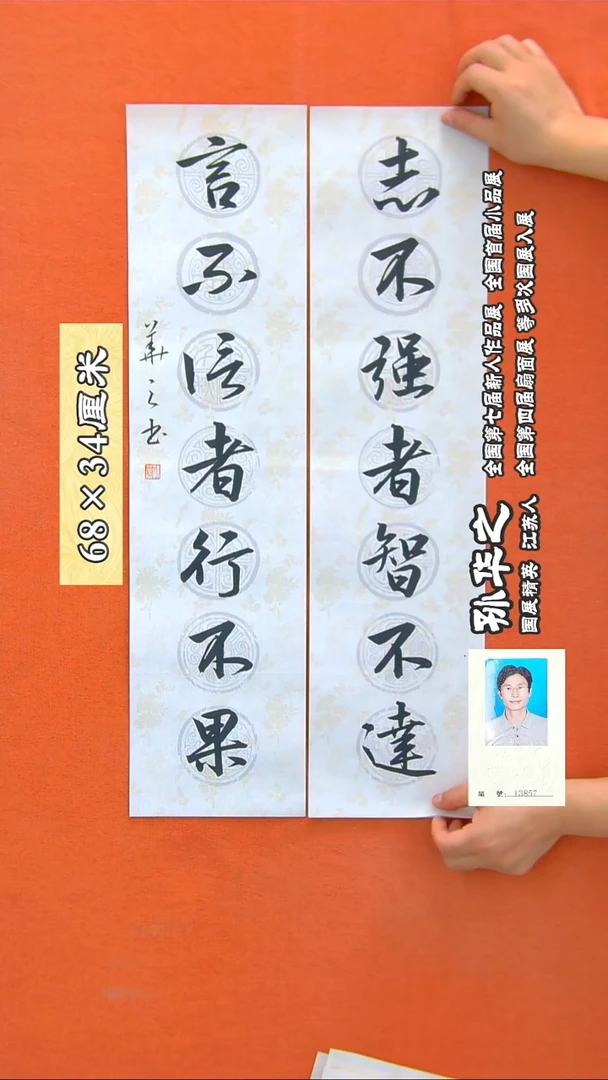 志不强者智不達
言不信者行不果
華之书
68×34厘米
孙华之
国展精英 江苏人
全国第七届新人作品展 全国首届小品展
全国第四届扇面展 等多次国展入展
號: 13857